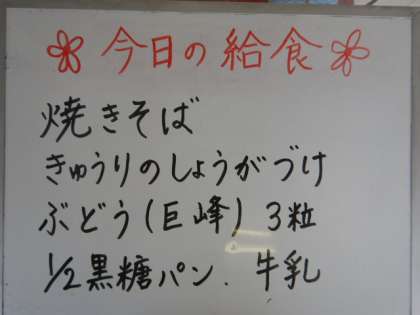 今日の給食
焼きそば
きゅうりのしょうがづけ
ぶどう(巨峰) 3粒
1/2黒糖パン. 牛乳